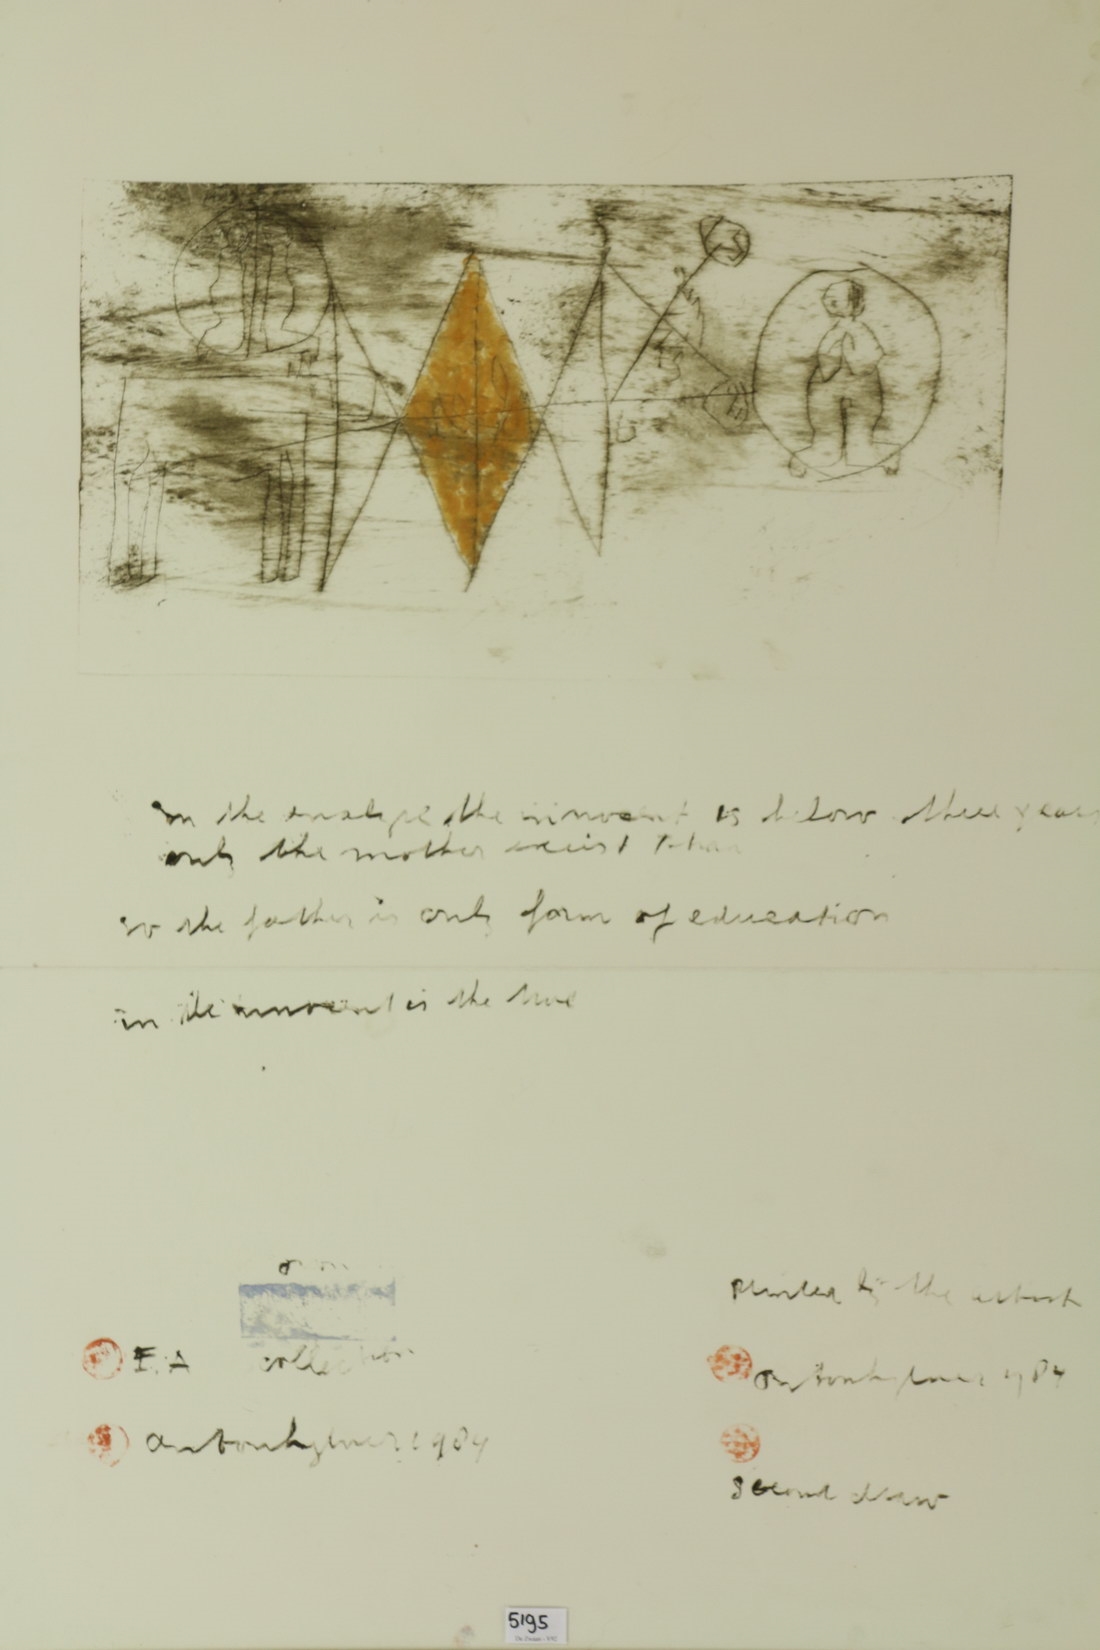 in the the innocent is below three years
only the mother exist than
the father is only form of education
in the innocent is the true
E.A collection
Printed by the artist
Anton heyboer 1984
Anton heyboer 1984
second draw
5195